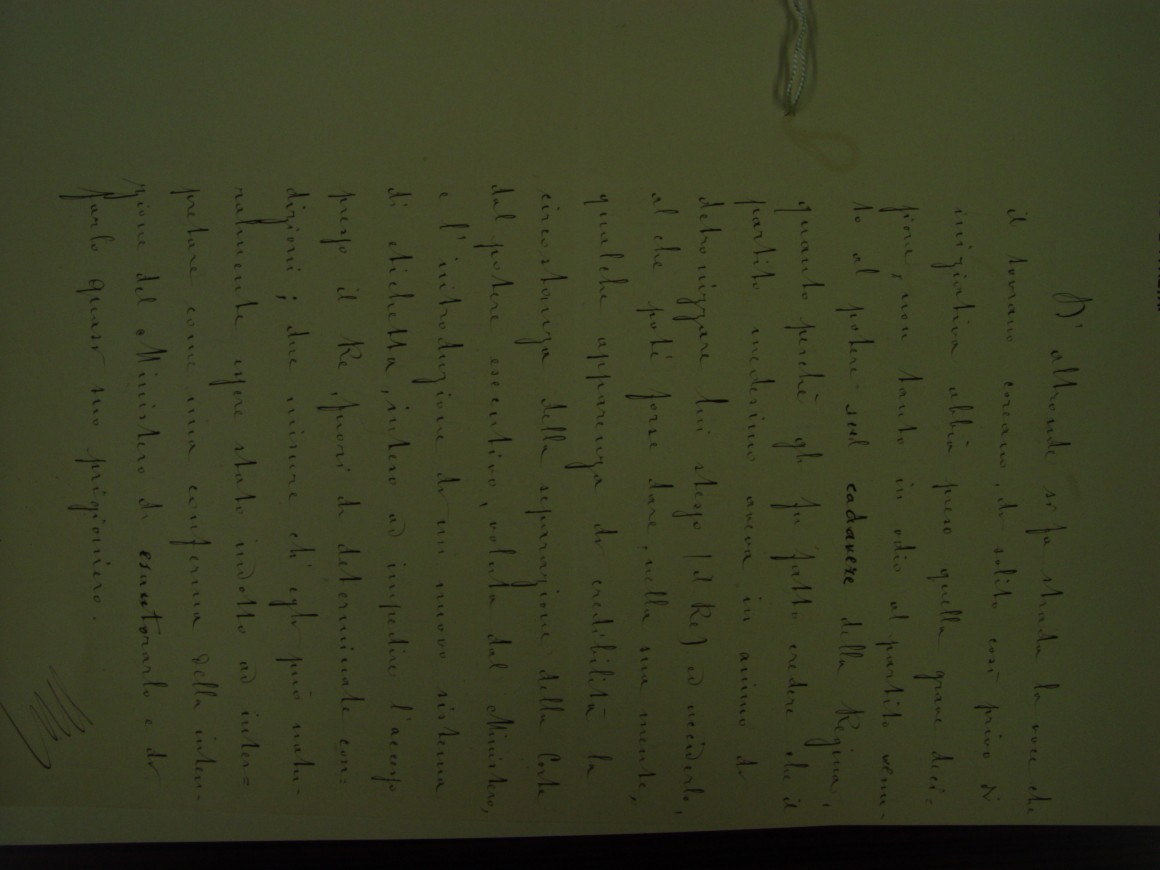 D'altronde si fa strada la voce che
il sovrano coreano, di solito così privo di
iniziativa abbia preso quella grave deci-
sione, non tanto in odio al partito venu-
to al potere sul cadavere della Regina,
quanto perchè gli fu fatto credere che il
partito medesimo aveva in animo di
detronizzare lui stesso (il Re) ed ucciderlo,
al che potè forse dare, nella sua mente,
qualche apparenza di credibilità la
circostanza della separazione della Corte
dal potere esecutivo, voluta dal Ministero,
e l'introduzione di un nuovo sistema
di etichetta, inteso ad impedire l'accesso
presso il Re, fuori di determinate con=
dizioni; due misure ch'egli può natu-
ralmente essere stato indotto ad inter=
pretare come una conferma della inten-
zione del Ministero di esautorarlo e di
farlo quasi suo prigioniero.